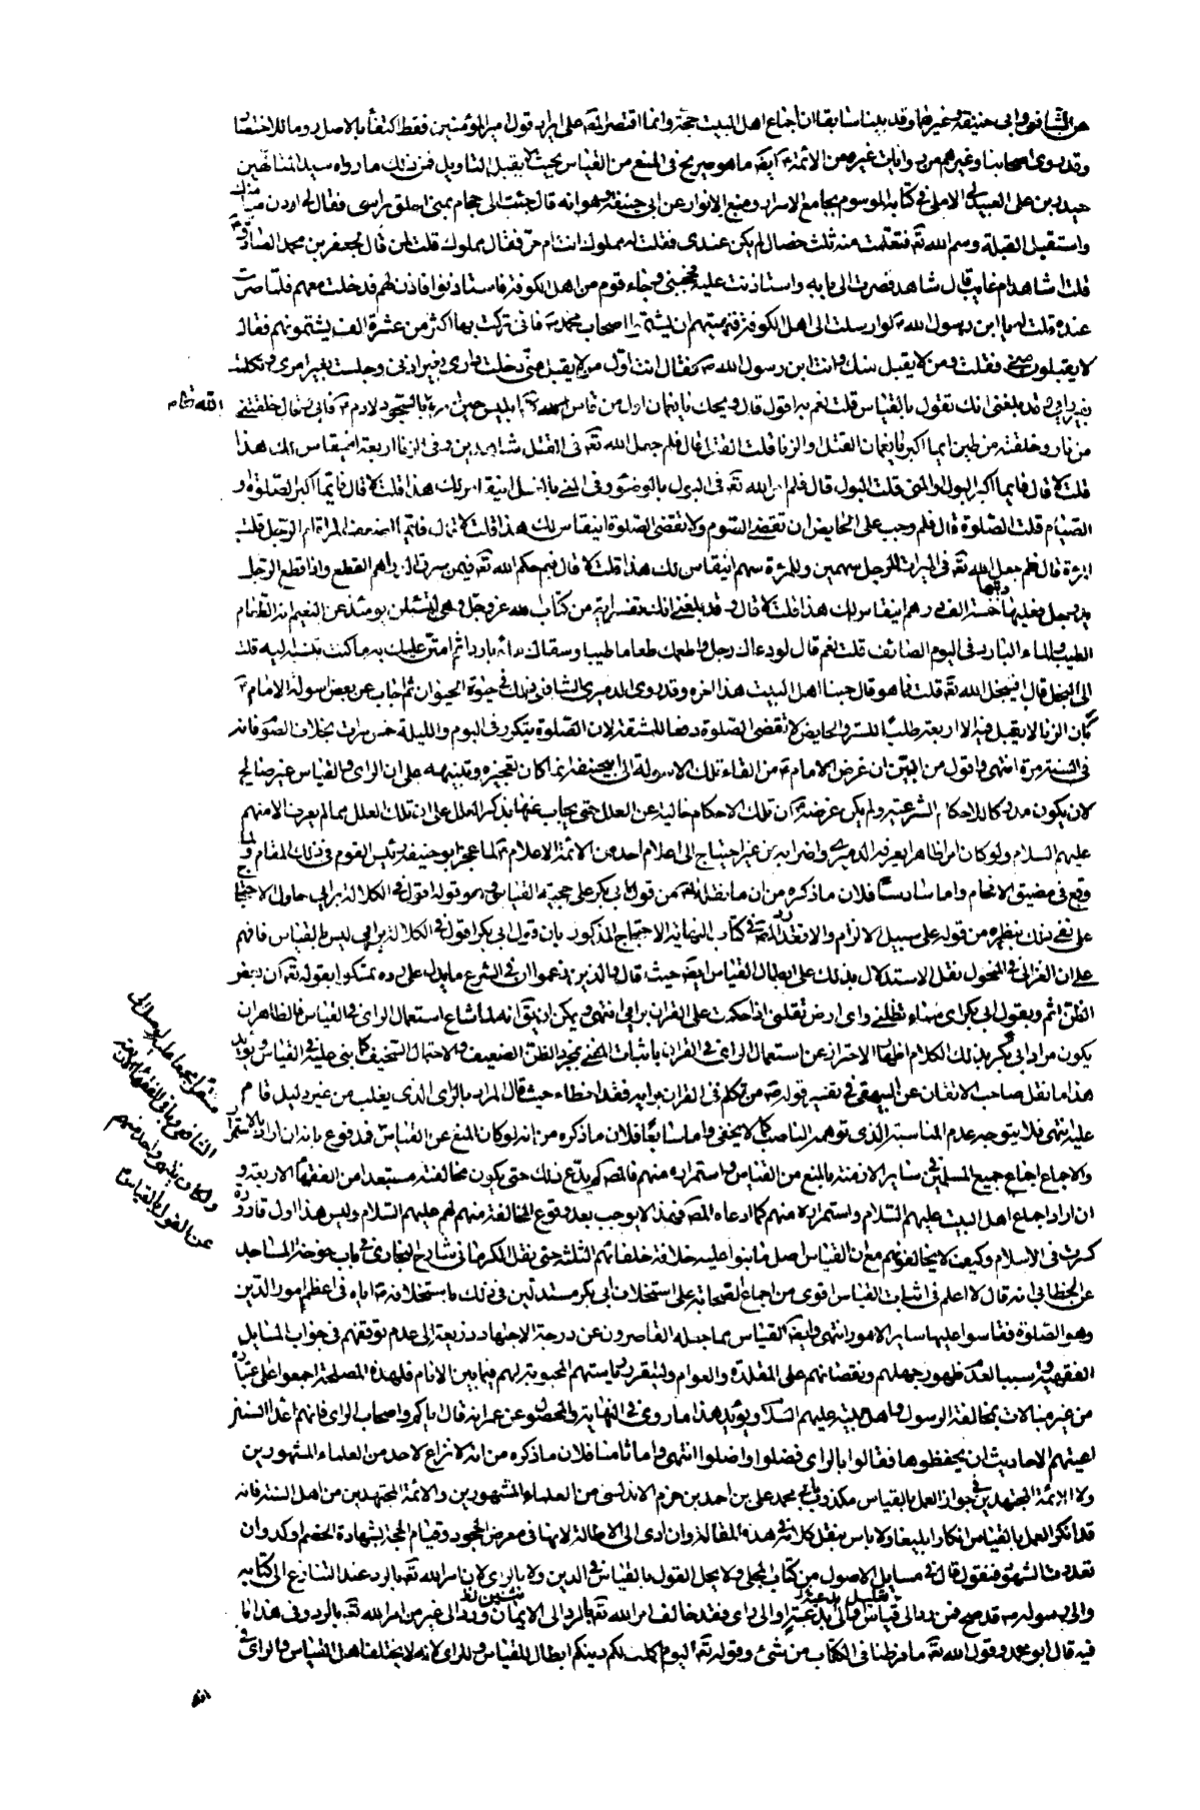 عن الشافعي وابي حنيفة وغيرهما وقد بينا سابقا ان اجماع اهل البيت حجة وانما اقتصر المصه على ايراد قول امير المؤمنين فقط اكتفاء بالاصل وروما للاختصار
وقد روى اصحابنا وغيرهم من روايات غيره من الائمة ع ايضا ما هو صريح في المنع من القياس بحيث لا يقبل التاويل فمن ذلك ما رواه سيد المتالهين
حيدر بن علي العبيدلي الاملي في كتابه الموسوم بجامع الاسرار ومنبع الانوار عن ابي حنيفة وهو انه قال جئت الى حجام بمنى لحلق راسي فقال لي ادن ميامنك
واستقبل القبلة وسم الله تعه فتعلمت منه ثلث خصال لم يكن عندي فقلت له مملوك انت ام حر فقال مملوك قلت لمن قال لجعفر بن محمد الصادق ع
قلت اشاهد ام غايب قال شاهد فصرت الى بابه واستاذنت عليه فحجبني وجاء قوم من اهل الكوفة فاستاذنوا فاذن لهم فدخلت معهم فلما صرت
عنده قلت له يا ابن رسول الله ص لو ارسلت الى اهل الكوفة فنهيتهم ان يشتموا اصحاب محمد ص فاني تركت بها اكثر من عشرة الف يشتمونهم فقال
لا يقبلون مني فقلت ومن لا يقبل منك وانت ابن رسول الله ص فقال انت اول من لا يقبل مني دخلت داري بغير اذني وجلست بغير امري وتكلمت
بغير رايي وقد بلغني انك تقول بالقياس قلت نعم به اقول قال ويحك يا نعمان اول من قاس الله تعه ابليس حين امره بالسجود لادم ع فابى وقال خلقتني
من نار وخلقته من طين ايما اكبر يا نعمان القتل او الزنا قلت القتل قال فلم جعل الله تعه في القتل شاهدين وفي الزنا اربعة اينقاس لك هذا
قلت لا قال فايما اكبر البول او المني قلت البول قال فلم امر الله تعه في البول بالوضوء وفي المني بالغسل اينقاس لك هذا قلت لا قال فايما اكبر الصلوة او
الصيام قلت الصلوة قال فلم وجب على الحايض ان تقضي الصوم ولا تقضي الصلوة اينقاس لك هذا قلت لا قال فايما اضعف المراة ام الرجل قلت
المرءة قال فلم جعل الله تعه في الميراث للرجل سهمين وللمرءة سهم اينقاس لك هذا قلت لا قال فبم حكم الله تعه فيمن سرق الدراهم القطع واذا قطع الرجل
يد رجل فعليه ديتها خمسة الف درهم اينقاس لك هذا قلت لا قال وقد بلغني انك تفسر اية من كتاب الله عز وجل وهي لتسئلن يومئذ عن النعيم انه الطعام
الطيب والماء البارد في اليوم الصائف قلت نعم قال لو دعاك رجل واطعمك طعاما طيبا وسقاك ماء باردا ثم امتن عليك به ما كنت تنسبه اليه قلت
الى البخل قال افيبخل الله تعه قلت فما هو قال حبنا اهل البيت هذا اخره وقد روى الدميري الشافعي ذلك في حيوة الحيوان ثم اجاب عن بعض اسولة الامام ع
بان الزنا لا يقبل فيه الا اربعة طلبا للستر والحايض لا تقضي الصلوة دفعا للمشقة لان الصلوة يتكرر في اليوم والليلة خمس مرات بخلاف الصوم فانه
في السنة مرة انتهى واقول من البين ان غرض الامام ع من القاء تلك الاسولة الى ابي حنيفة انما كان تعجيزه وتنبيهه على ان الراي والقياس غير صالح
لان يكون مدركا للاحكام الشرعية ولم يكن غرضه ع ان تلك الاحكام خالية عن العلل حتى يجاب عنها بذكر العلل على ان تلك العلل مما لم يعرف الا منهم
عليهم السلام ولو كان امرا ظاهرا يعرفه الدميري واضرابه من غير احتياج الى اعلام احد من الائمة الاعلام ع لما عجز ابو حنيفة رئيس القوم في ذلك المقام ولما
وقع في مضيق الافحام واما سادسا فلان ما ذكره من ان ما نقله المصه من قول ابي بكر على حجية القياس وهو قوله اقول في الكلالة برايي حاول الاحتجاج
على نفي ذلك بنظيره من قوله على سبيل الالزام والا فقد رد المصه في كتاب النهاية الاحتجاج المذكور بان قول ابي بكر اقول في الكلالة برايي ليس بالقياس فافهم
على ان الغزالي في المنخول نقل الاستدلال بذلك على ابطال القياس ايضا حيث قال والذين زعموا ان في الشرع ما يدل على رده تمسكوا بقوله تعه ان بعض
الظن اثم وبقول ابي بكر اي سماء تظلني واي ارض تقلني اذا حكمت على القران برايي انتهى ويمكن ان يق انه لما شاع استعمال الراي في القياس فالظاهر ان
يكون مراد ابي بكر بذلك الكلام اظهار الاحتراز عن استعمال الراي في القران باثبات المخفي بمجرد الظن الضعيف والاحتمال السخيف كما بني عليه في القياس ويؤيد
هذا ما نقل صاحب الاتقان عن البيهقي في تفسير قوله ص من تكلم في القران برايه فقد اخطاء حيث قال المراد بالراي الذي يغلب من غير دليل قام
عليه انتهى فلا يتوجه عدم المناسبة الذي توهمه الناصب كما لا يخفى واما سابعا فلان ما ذكره من انه لو كان المنع عن القياس فمدفوع بانه ان اراد بالاستمرار
والاجماع اجماع جميع المسلمين في ساير الازمنة بالمنع من القياس واستمراره منهم فالمصه لم يدع ذلك حتى يكون مخالفته مستبعدا من الفقهاء الاربعة و
ان اراد اجماع اهل البيت عليهم السلام واستمراره منهم كما ادعاه المصه فهذا لا يوجب بعد وقوع المخالفة منهم لهم عليهم السلام وليس هذا اول قارورة
كسرت في الاسلام وكيف لا يخالفونهم مع ان القياس اصل ما بنوا عليه خلافة خلفائهم الثلثة حتى نقل الكرماني شارح البخاري في باب خوخة المساجد
عن الخطابي انه قال لا اعلم في اثبات القياس اقوى من اجماع الصحابة على استخلاف ابي بكر مستدلين في ذلك باستخلافه ص اياه في اعظم امور الدين
وهو الصلوة فقاسوا عليها ساير الامور انتهى وايضا القياس مما جعله القاصرون عن درجة الاجتهاد ذريعة الى عدم توقفهم في جواب المسايل
الفقهية وسببا لعدم ظهور جهلهم ونقصانهم على المقلدة والعوام وليتقرر رياستهم المحبوبة لهم فيما بين الانام فلهذه المصلحة اجمعوا على اعتباره
من غير مبالات بمخالفة الرسول واهل بيته عليهم السلام ويؤيد هذا ما روي في النهاية والمحصول عن عمر انه قال اياكم واصحاب الراي فانهم اعداء السنن
اعيتهم الاحاديث ان يحفظوها فقالوا بالراي فضلوا واضلوا انتهى واما ثامنا فلان ما ذكره من انه لا نزاع لاحد من العلماء المشهورين
ولا الائمة المجتهدين في جواز العمل بالقياس مكذوب بابي محمد علي بن احمد بن حزم الاندلسي من العلماء المشهورين والائمة المجتهدين من اهل السنة فانه
قد انكر العمل بالقياس انكارا بليغا ولا باس بنقل كلامه في هذه المقالة وان ادى الى الاطالة لانها في معرض الجحود وقيام الحجة بشهادة الخصم اوكد وان
تعددت الشهود فنقول قال في مسايل الاصول من كتاب المحلى ولا يحل القول بالقياس في الدين ولا بالراي لان امر الله تعه بالرد عند التنازع الى كتابه
والى رسوله ص قد صح فمن رد الى قياس والى تعليل يدعيه والى راي فقد خالف امر الله تعه بالرد الى الايمان ورد الى غير من امر الله تعه بالرد وفي هذا ما
فيه قال ابو محمد وقول الله تعه ما فرطنا في الكتاب من شيء وقوله تعه اليوم اكملت لكم دينكم ابطال للقياس وللراي لانه لا يختلف اهل القياس والراي في
انه
مستمرا مجمعا عليه لوصل الى
الشافعي وباقي الفقهاء الاربعة
ولكان ينتهي واحد منهم
عن القول بالقياس